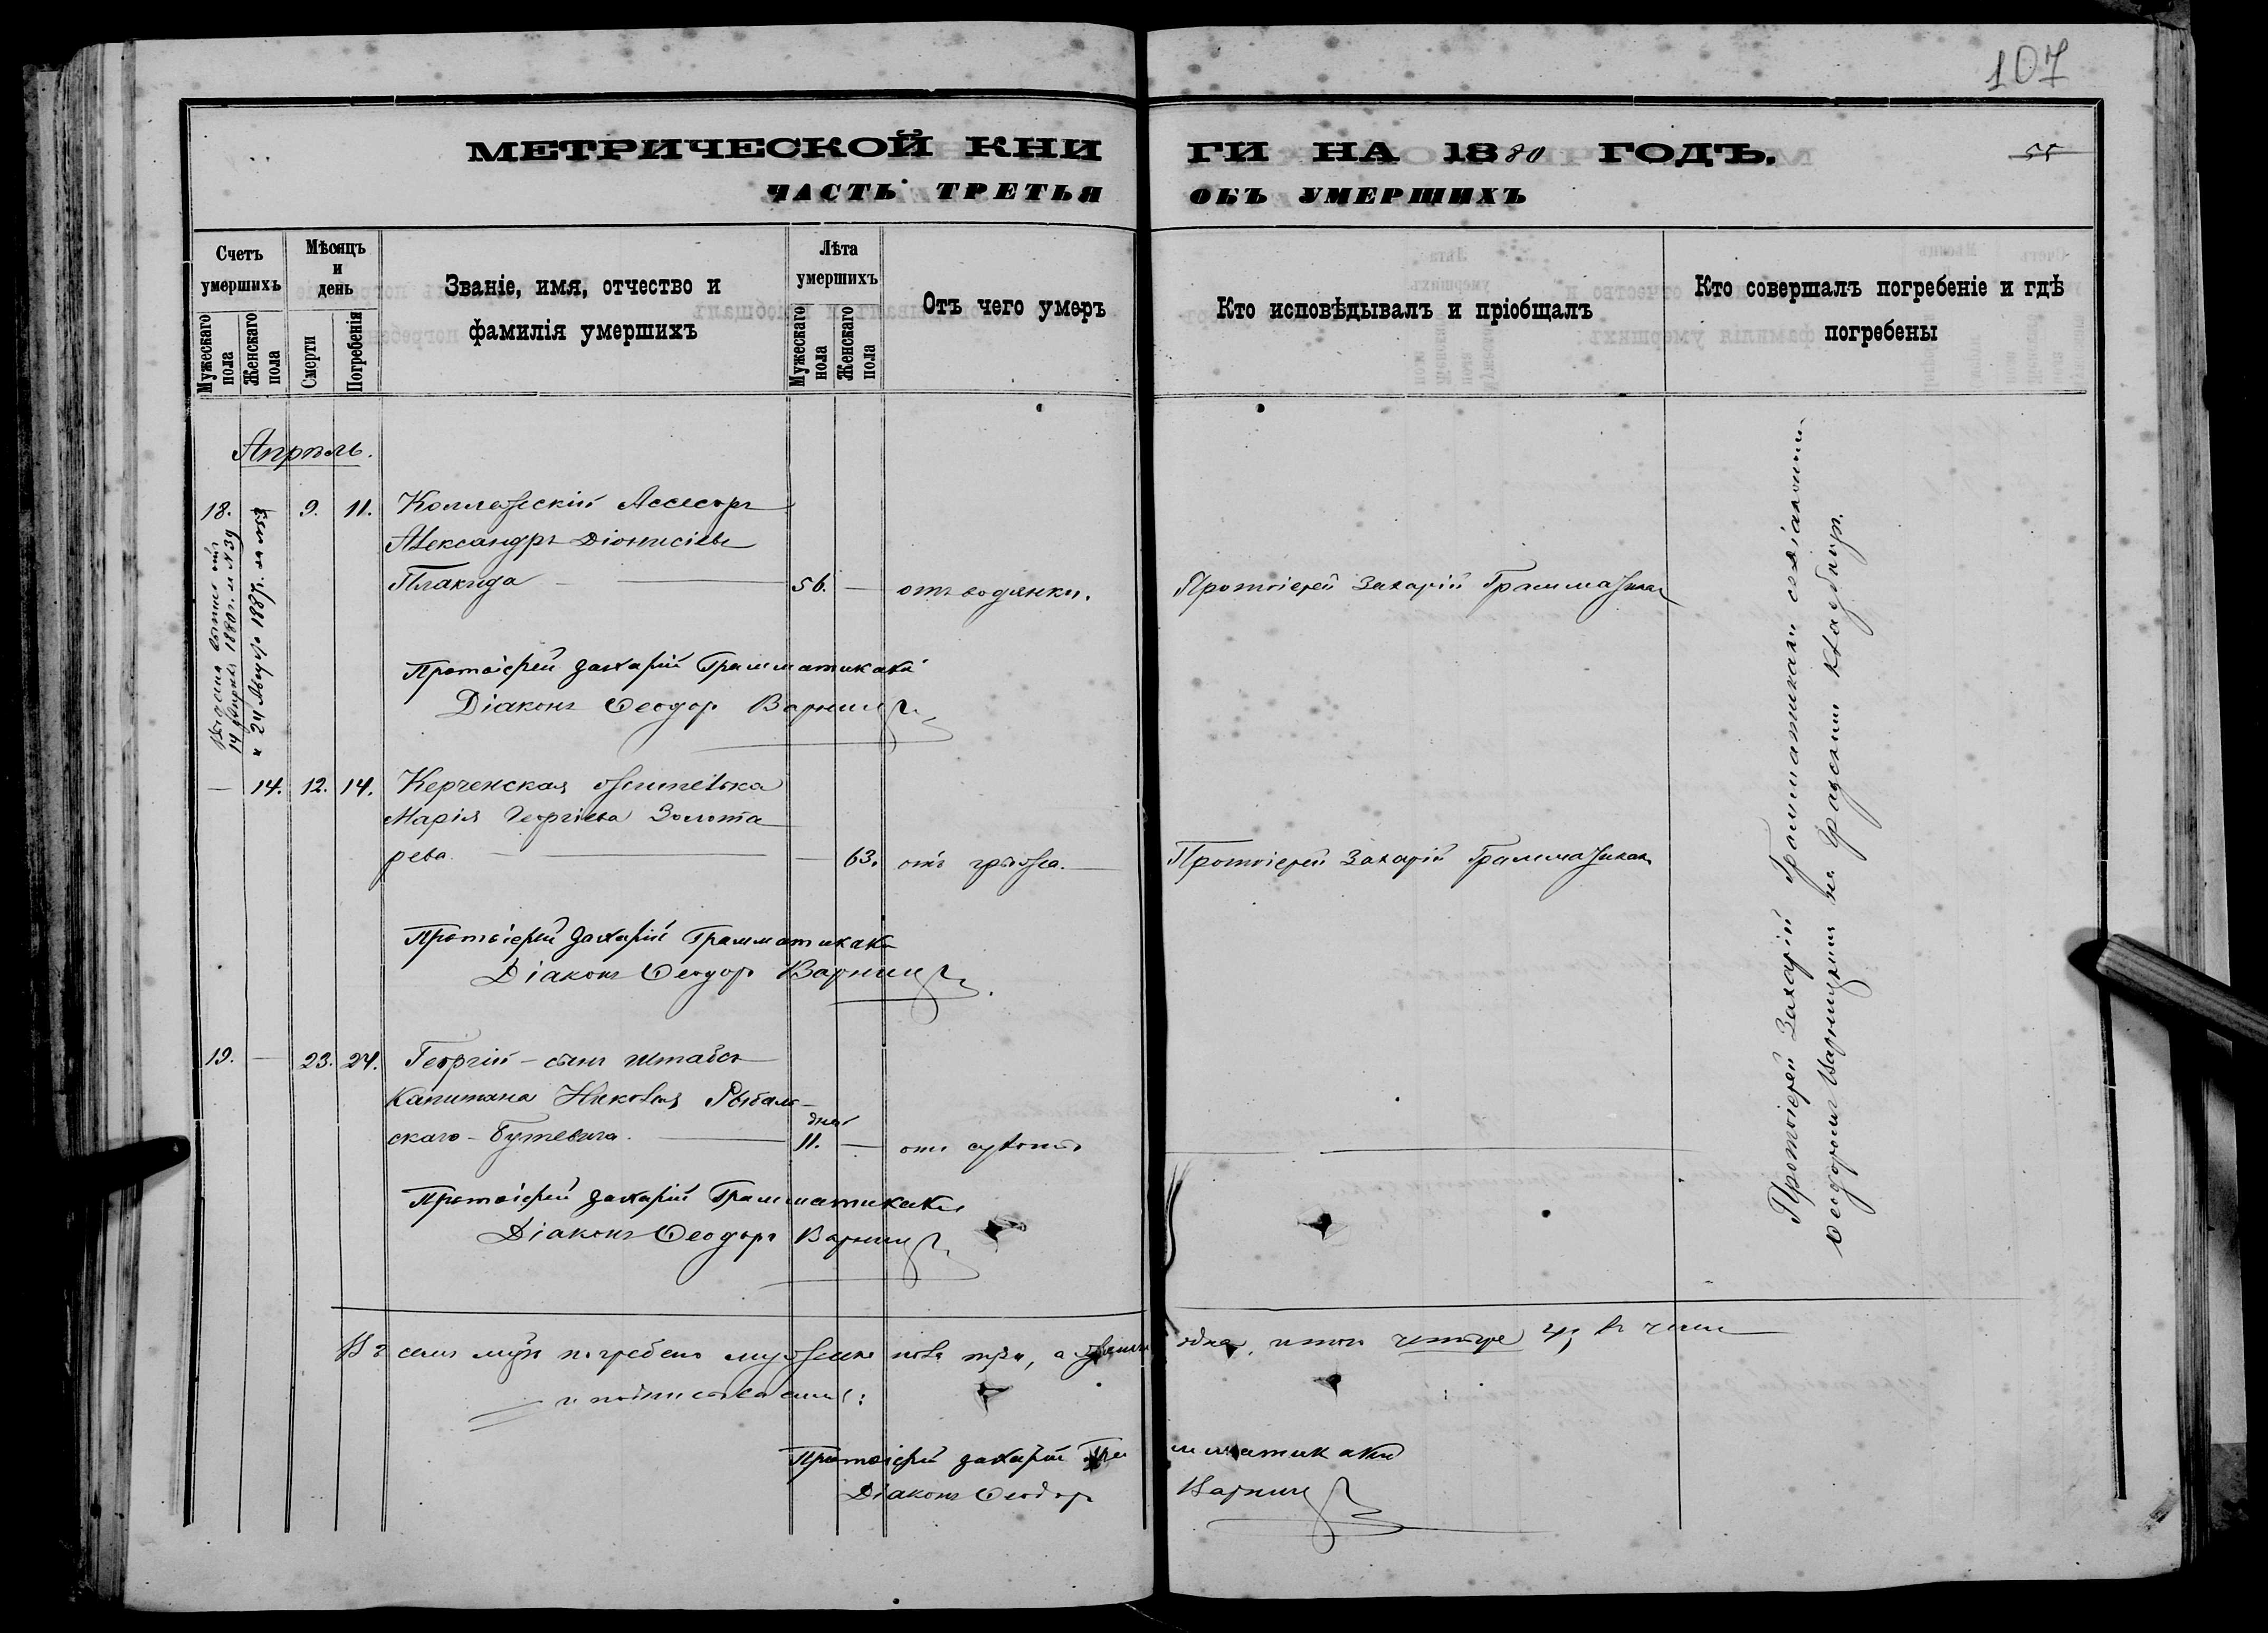 107
МЕТРИЧЕСКОЙ КНИГИ НА 1880 ГОДЪ.
55
ЧАСТЬ ТРЕТЬЯ ОБЪ УМЕРШИХЪ
Счетъ умершихъ
Мужескаго пола
Женскаго пола
Мѣсяцъ и день
Смерти
Погребенія
Званіе, имя, отчество и
фамилія умершихъ
Лѣта умершихъ
Мужескаго пола
Женскаго пола
Отъ чего умеръ
Кто исповѣдывалъ и пріобщалъ
Кто совершалъ погребеніе и гдѣ
погребены
Апрѣль.
18. 9. 11. Коллежскій Ассесоръ
Александръ Діонисіевъ
Плакида — 56. — отъ водянки. Протоіерей Захарій Грамматикаки
14 Апрѣля 1880 г. за № 39
и 24 Августа 1887 г. за №
Протоіерей Захарій Грамматикаки
Діаконъ Ѳеодоръ Варниц
— 14. 12. 14. Керченская жителька
Марія Георгіева Золота
рева. — — 63. отъ грыжа. — Протоіерей Захарій Грамматикаки
Протоіерей Захарій Грамматикаки
Діаконъ Ѳеодоръ Варниц
19. — 23. 24. Георгій – сынъ штабсъ
Капитана Николая Рыбаль
скаго – Бутевича. — дней 11. — отъ сухоты
Протоіерей Захарій Грамматикаки
Діаконъ Ѳеодоръ Варниц
Протоіерей Захарій Грамматикаки съ діакономъ
Ѳеодоромъ Варницкимъ на градскомъ кладбищѣ.
Въ семъ мцѣ погребено мужеска пола три, а женска одна, итого четыре 4, въ чемъ
и подписываемся:
Протоіерей Захарій Грамматикаки
Діаконъ Ѳеодоръ Варниц